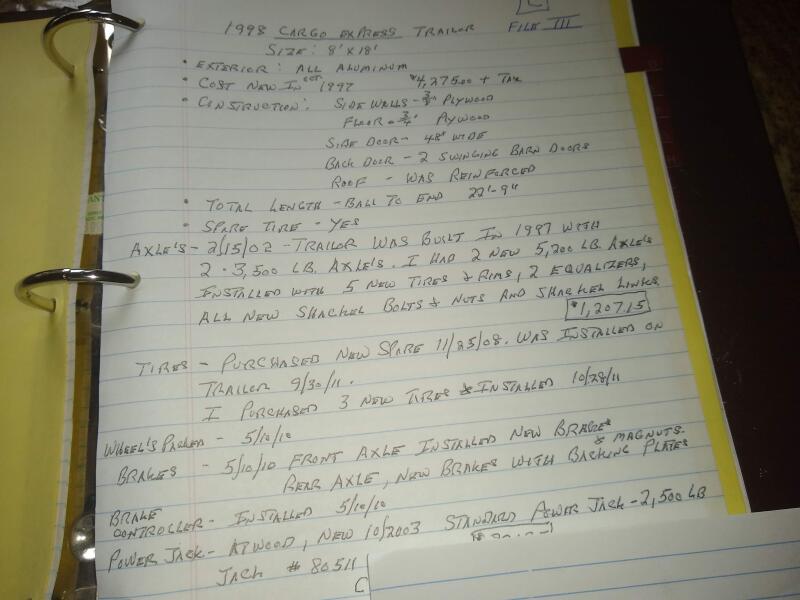 1998 CARGO EXPRESS TRAILOR
FILE III
SIZE: 8' X 18'
• EXTERIOR: ALL ALUMINUM
• COST NEW IN OCT. 1997 $4,275.00 + TAX
• CONSTRUCTION: SIDE WALLS - 3/8" PLYWOOD
FLOOR = 3/4" PLYWOOD
SIDE DOOR - 48" WIDE
BACK DOOR - 2 SWINGING BARN DOORS
ROOF - WAS REINFORCED
• TOTAL LENGTH - BALL TO END 22'-9"
• SPARE TIRE - YES
AXLE'S - 2/15/02 - TRAILOR WAS BUILT IN 1997 WITH
2 - 3,500 LB. AXLE'S. I HAD 2 NEW 5,200 LB. AXLE'S
INSTALLED WITH 5 NEW TIRES & RIMS, 2 EQUALIZERS,
ALL NEW SHACKEL BOLTS & NUTS AND SHACKEL LINKS.
$1,207.15
TIRES - PURCHASED NEW SPARE 11/25/08. WAS INSTALLED ON
TRAILOR 9/30/11.
I PURCHASED 3 NEW TIRES & INSTALLED 10/28/11
WHEEL'S PACKED - 5/10/10
BRAKES - 5/10/10 FRONT AXLE INSTALLED NEW BRAKES & MAGNUTS.
REAR AXLE, NEW BRAKES WITH BACKING PLATES
BRAKE
CONTROLLER - INSTALLED 5/10/10
POWER JACK - ATWOOD, NEW 10/2003 STANDARD POWER JACK - 2,500 LB
JACK # 80511